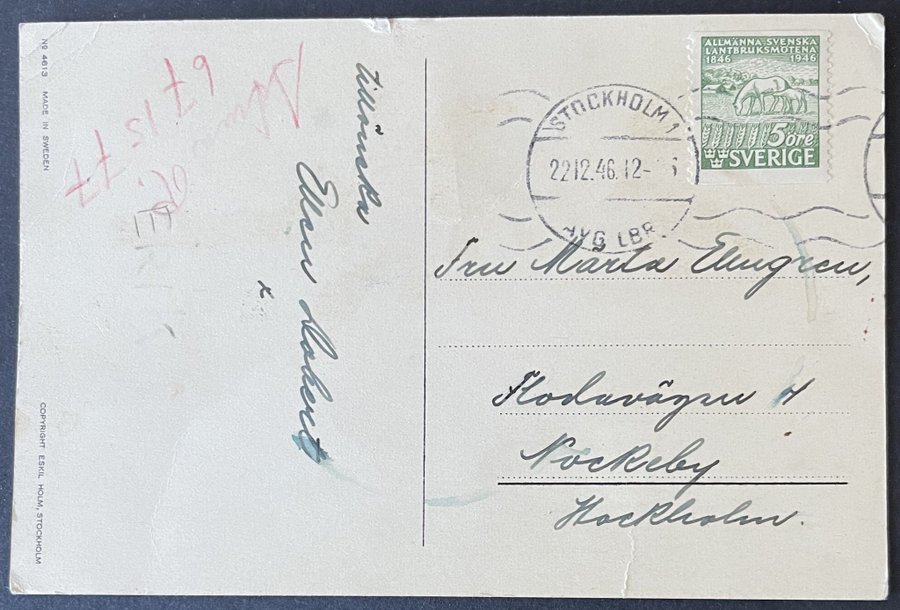 No 4613 MADE IN SWEDEN
COPYRIGHT ESKIL HOLM, STOCKHOLM
67 15 77
tillönska
Ellen
x
ALLMÄNNA SVENSKA
LANTBRUKSMÖTENA
1846 1946
5 öre
SVERIGE
STOCKHOLM 1
22 12.46.12-
AVG LBR
Fru Märta Elmgren,
Flodavägen 4
Nockeby
Stockholm.